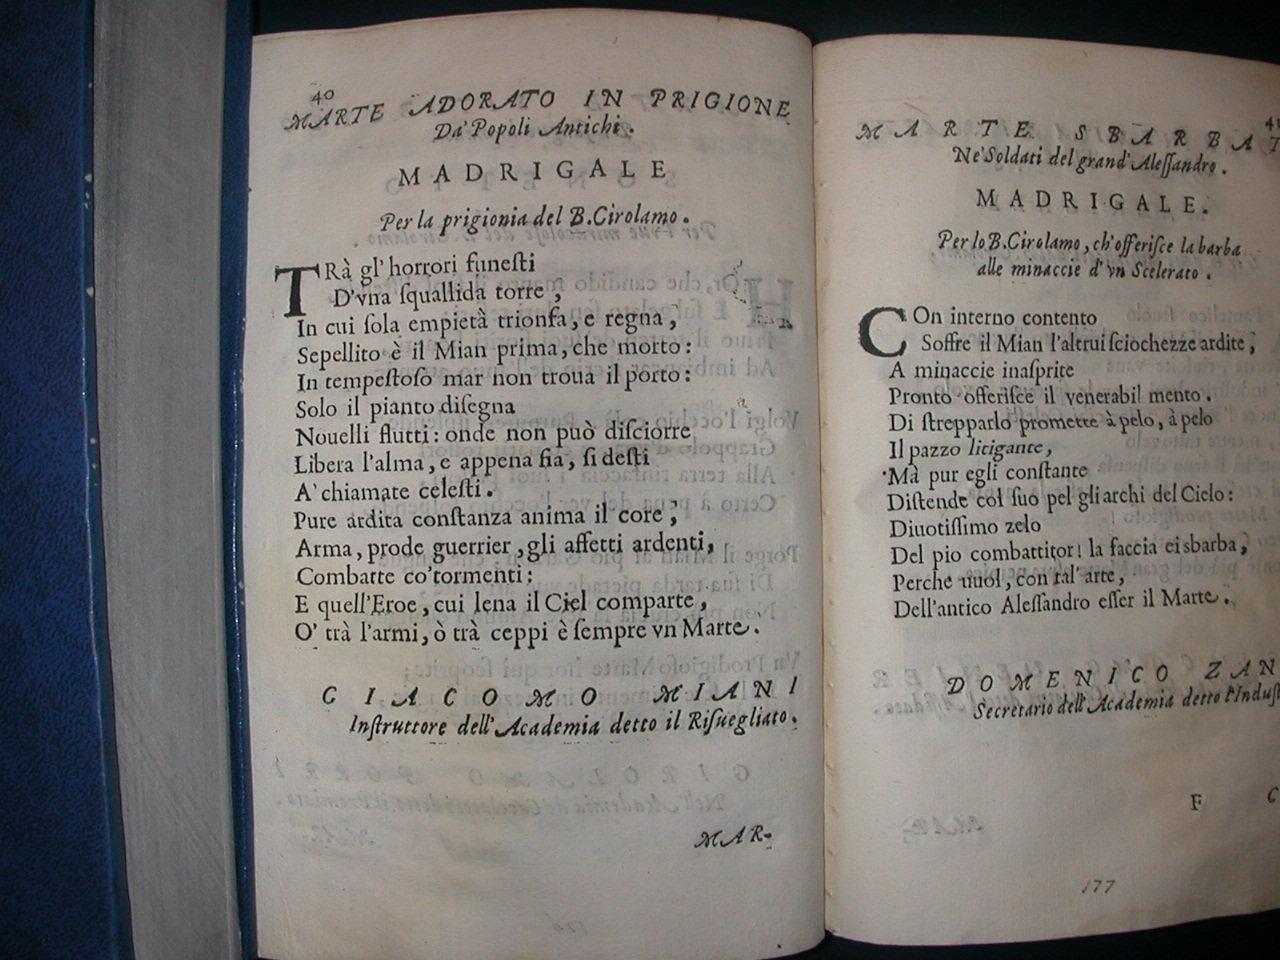 40
MARTE ADORATO IN PRIGIONE
Da' Popoli Antichi.
MADRIGALE
Per la prigionia del B. Cirolamo.
TRà gl'horrori funeſti
D'vna ſquallida torre,
In cui ſola empietà trionfa, e regna,
Sepellito è il Mian prima, che morto:
In tempeſtoſo mar non troua il porto:
Solo il pianto diſegna
Nouelli flutti: onde non può diſciorre
Libera l'alma, e appena fia, ſi deſti
A' chiamate celeſti.
Pure ardita conſtanza anima il core,
Arma, prode guerrier, gli affetti ardenti,
Combatte co'tormenti:
E quell'Eroe, cui lena il Ciel comparte,
O' trà l'armi, ò trà ceppi è ſempre vn Marte.
CIACOMO MIANI
Inſtruttore dell'Academia detto il Riſuegliato.
MAR-
41
MARTE SBARBAT
Ne' Soldati del grand' Aleſſandro.
MADRIGALE.
Per lo B. Cirolamo, ch'offeriſce la barba
alle minaccie d'vn Scelerato.
COn interno contento
Soffre il Mian l'altrui ſciochezze ardite,
A minaccie inaſprite
Pronto offeriſce il venerabil mento.
Di ſtrepparlo promette à pelo, à pelo
Il pazzo litigante,
Mà pur egli conſtante
Diſtende col ſuo pel gli archi del Cielo:
Diuotiſſimo zelo
Del pio combattitor! la faccia ei sbarba,
Perche vuol, con tal'arte,
Dell'antico Aleſſandro eſſer il Marte.
DOMENICO ZAN
Secretario dell'Academia detto l'Induſt
F
177